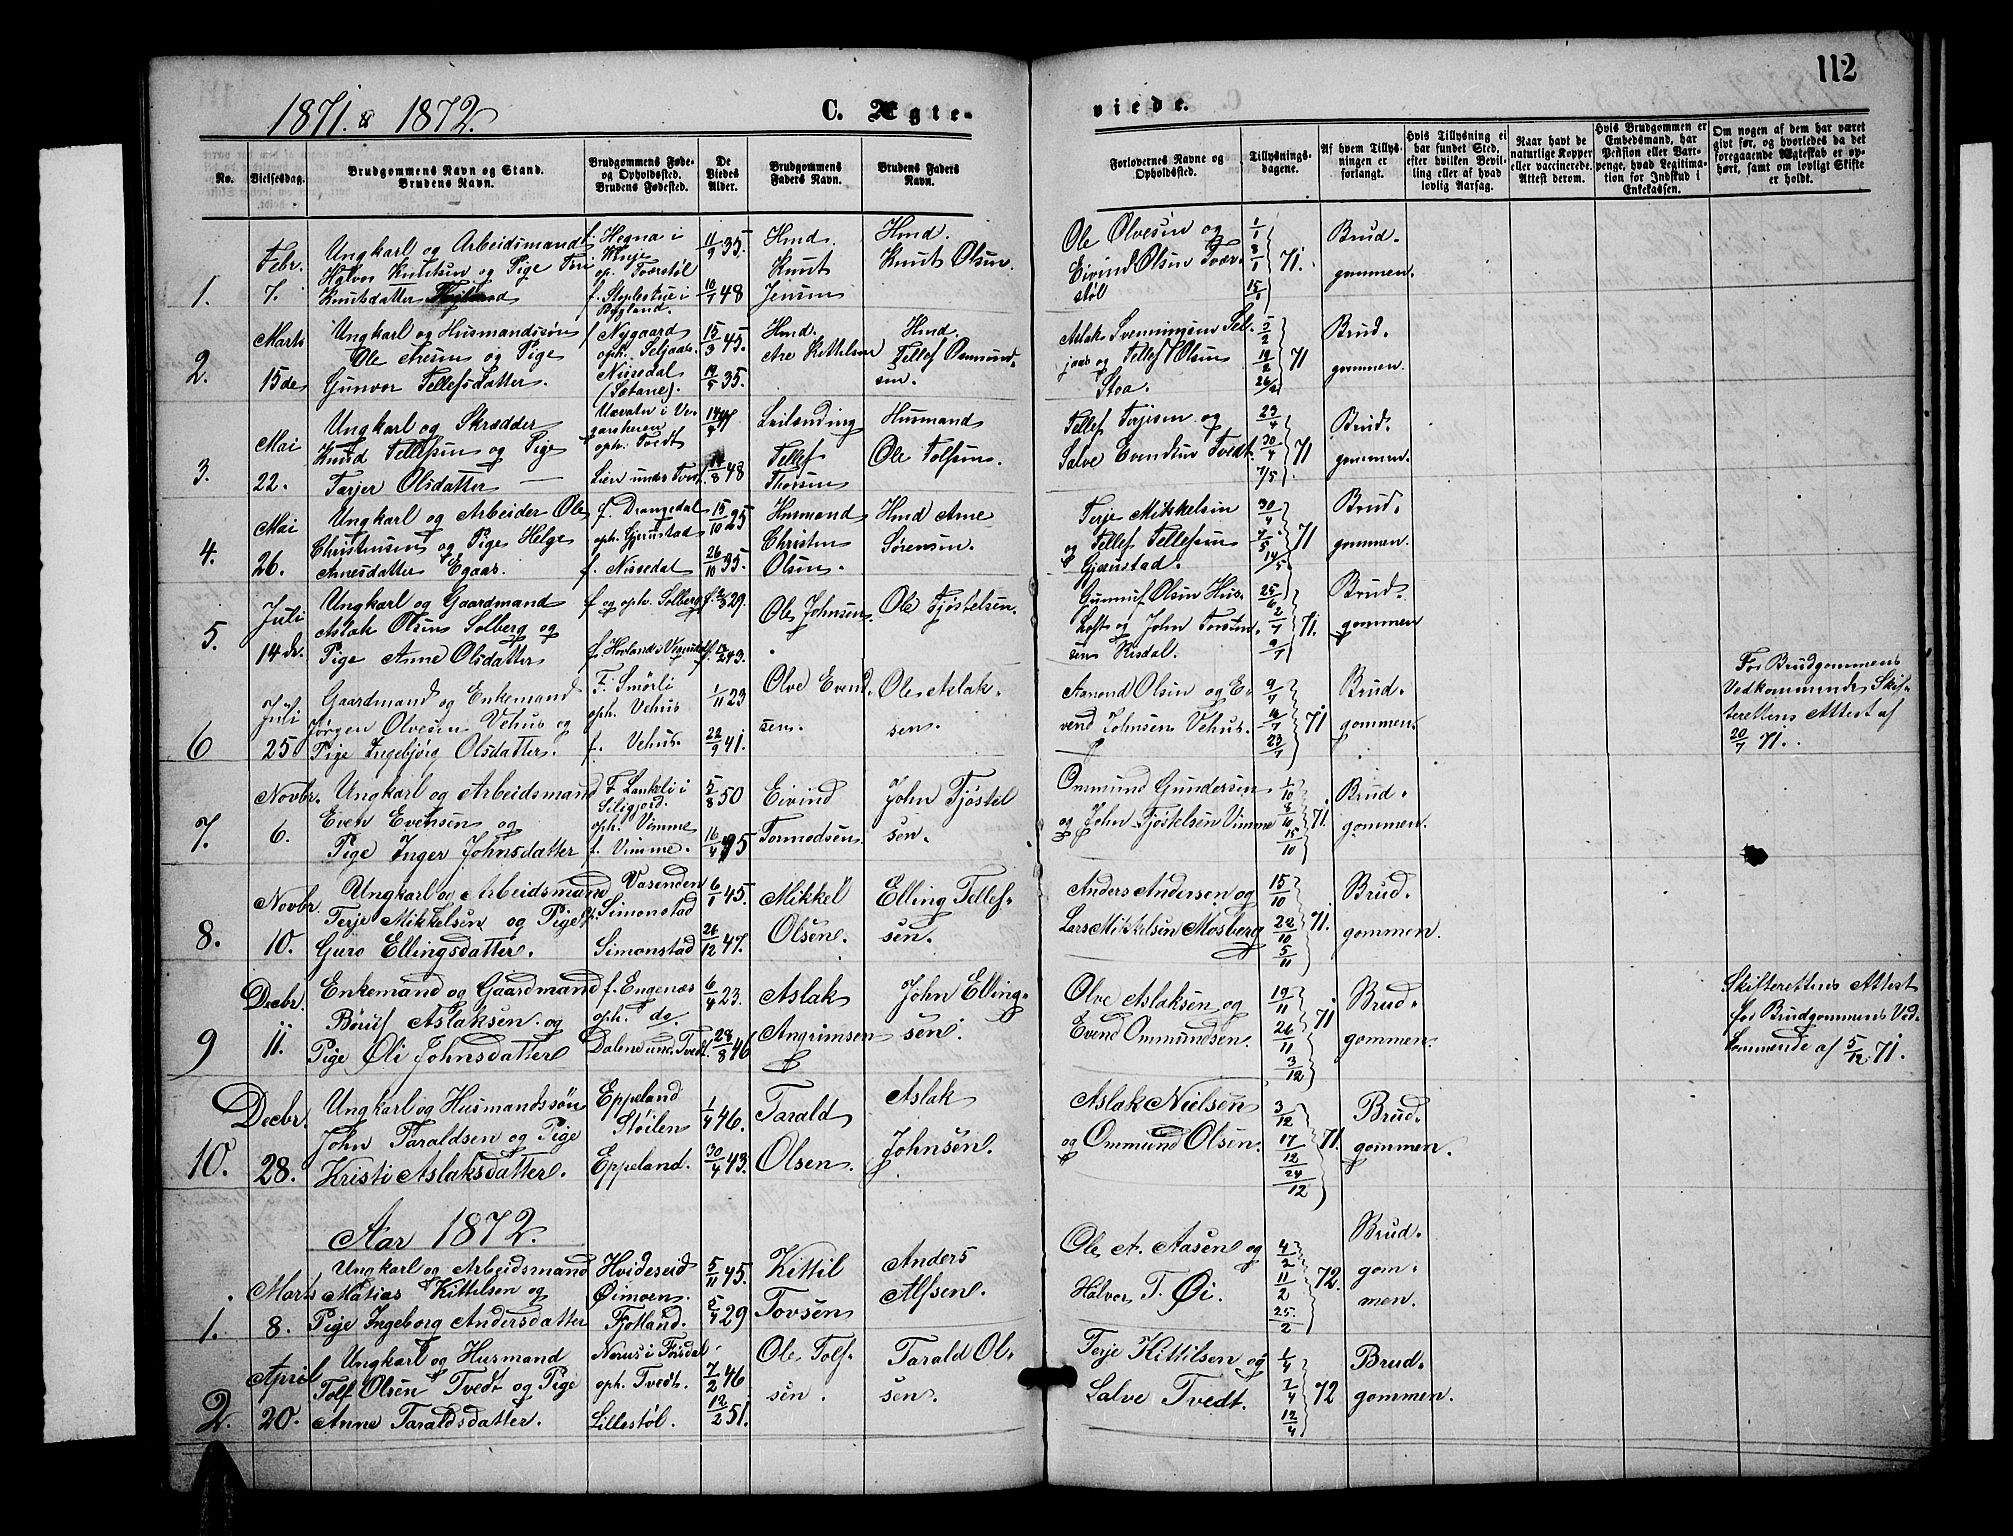 112
1871. & 1872.
C. Ægte-
viede.
No.
Vielsesdag.
Brudgommens Navn og Stand.
Brudens Navn.
Brudgommens Føde-
og Opholdssted.
Brudens Fødested.
De
Viedes
Alder.
Brudgommens
Faders Navn.
Brudens Faders
Navn.
Forlovernes Navne og
Opholdssted.
Tillysnings-
dagene.
Af hvem Tillys-
ningen er
forlangt.
Hvis Tillysning ei
har fundet Sted,
efter hvilken Bevil-
ling eller af hvad
lovlig Aarsag.
Naar havt de
naturlige Kopper
eller vaccinerede.
Attest derom.
Hvis Brudgommen er
Embedsmand, har
Pension eller Vart-
penge, hvad Legitima-
tion for Indskud i
Enkekassen.
Om nogen af dem har været
gift før, og hvorledes da det
foregaaende Ægteskab er op-
hørt, samt om lovligt Skifte
er holdt.
1.
Febr.
7.
Ungkarl og Arbeidsmand
Halvor Knutsen og Pige
Knutsdatter
f. Hegna i
op. Tværstøl
f. Stoplestue i
Bygland.
11/9 35.
10/7 48
Hmd.
Knut
Jensen
Hmd.
Knut Olsen.
Ole Olvesen og
Eivind Olsen Tvær-
støl
1/1
8/1
15/1
71.
Brud-
gommen.
2.
Marts
15de
Ungkarl og Husmandssøn
Ole Aresen og Pige
Gunvor Tellefsdatter.
f Nygaard
oph. Seljaas.
Nissedal
(Søtane).
15/3 45.
19/5 35.
Hmd.
Are Kittelsen
Hmd.
Tellef Osmund-
sen.
Aslak Svenningsen Sel-
jaas og Tellef Olsen
Stoa.
5/2
19/2
26/2
71
Brud-
gommen.
3.
Mai
22.
Ungkarl og Skrædder
Knud Tellefsen og Pige
Tarjer Olsdatter
Uævatn i Ve-
garsheien
oph. Tvedt
Lien under Tvedt
8 48
Leilending
Tellef
Thorsen
Husmand
Ole Tolfsen.
Tellef Terjesen og
Salve Evendsen Tvedt.
23/4
30/4
7/5
71
Brud-
gommen.
4.
Mai
26.
Ungkarl og Arbeider Ole
Christensen og Pige Helge
Arnesdatter Egaas.
f. Drangedal
oph. Gjerustad
f. Nissedal
15/10 25
26/10 35.
Husmand
Christen
Olsen.
Hmd Arne
Sørensen.
Terje Mikkelsen
og Tellef Tellefsen
Gjerustad.
30/4
7/5
14/5
71
Brud-
gommen.
5.
Juli
14de.
Ungkarl og Gaardmand
Aslak Olsen Solberg og
Pige Anne Olsdatter
f og oph. Solberg
2/3 29.
2 43.
Ole Johnsen.
Ole Tjøstelsen.
Gunnuf Olsen Hus-
toft og John Torsten-
sen Risdal.
25/6
2/7
9/7
71.
Brud-
gommen
6
Juli
25
Gaardmand og Enkemand
Jørgen Olvesen Vehus og
Pige Ingebjørg Olsdatter.
F. Smørli
oph. Vehus
f. Vehus.
1/11 23
22/9 41.
Olve Evend-
sen.
Ole Aslak-
sen.
Aanond Olsen og E-
vend Johnsen Vehus.
9/7
16/7
23/7
71
Brud-
gommen.
For Brudgommens
Vedkommende Skif-
terettens Attest af
20/7 71.
7.
Novbr.
6.
Ungkarl og Arbeidsmand
Even Evensen og
Pige Inger Johnsdatter
F. Lankeli i
Siligjord.
oph. Vimme
f. Vimme.
5/8 50
16/4 35
Eivind
Tormodsen
John Tjøstel
sen.
Ommund Gundersen
og John Tjøstelsen Vimme
1/10
8/10
15/10
71.
Brud-
gommen.
8.
Novbr.
10.
Ungkarl og Arbeidsmand
Terje Mikkelsen og Pige
Guro Ellingsdatter.
Vasenden
Simonstad
Simonstad
6/1 45.
26/12 47.
Mikkel
Olsen.
Elling Tellef-
sen.
Anders Andersen og
Lars Mikkelsen Mosberg
15/10
22/10
5/11
71.
Brud-
gommen.
9
Decbr.
11.
Enkemand og Gaardmand
Børuf Aslaksen og
Pige Oli Johnsdatter
f. Engenæs
oph. do.
Dalen und. Tvedt.
6/4 23.
28/8 46
Aslak
Angrimsen
John Elling-
sen.
Olve Aslaksen og
Evend Ommundsen.
19/11
26/11
3/12
71
Brud-
gommen.
Skifterettens Attest
for Brudgommens Ved-
kommende af 5/12 71.
10.
Decbr.
28.
Ungkarl og Husmandssøn
John Taraldsen og Pige
Kristi Aslaksdatter.
Eppeland
Støilen
Eppeland.
1/4 46.
30/4 43.
Tarald
Olsen.
Aslak
Johnsen.
Aslak Nielsen
og Ommund Olsen.
3/12
17/12
24/12
71.
Brud-
gommen.
Aar 1872.
1.
Marts
8.
Ungkarl og Arbeidsmand
Matias Kittelsen og
Pige Ingeborg Andersdatter
Hvideseid
Øimoen.
Fjotland.
5/11 45.
5/4 29
Kittil
Tovsen
Anders
Alfsen.
Ole A. Aasen og
Halvor T. Øi.
4/2
11/2
25/2
72.
Brud-
gom-
men.
2.
April
20.
Ungkarl og Husmand
Tolf Olsen Tvedt og Pige
Anne Taraldsdatter.
Nerus i Fiisdal
oph. Tvedt.
Lillestøl.
7/2 46
12/2 51.
Ole Tolf-
sen.
Tarald Ol-
sen.
Terje Kittilsen og
Salve Tvedt.
1/4
7/4
12/4
72
Brud-
gommen.